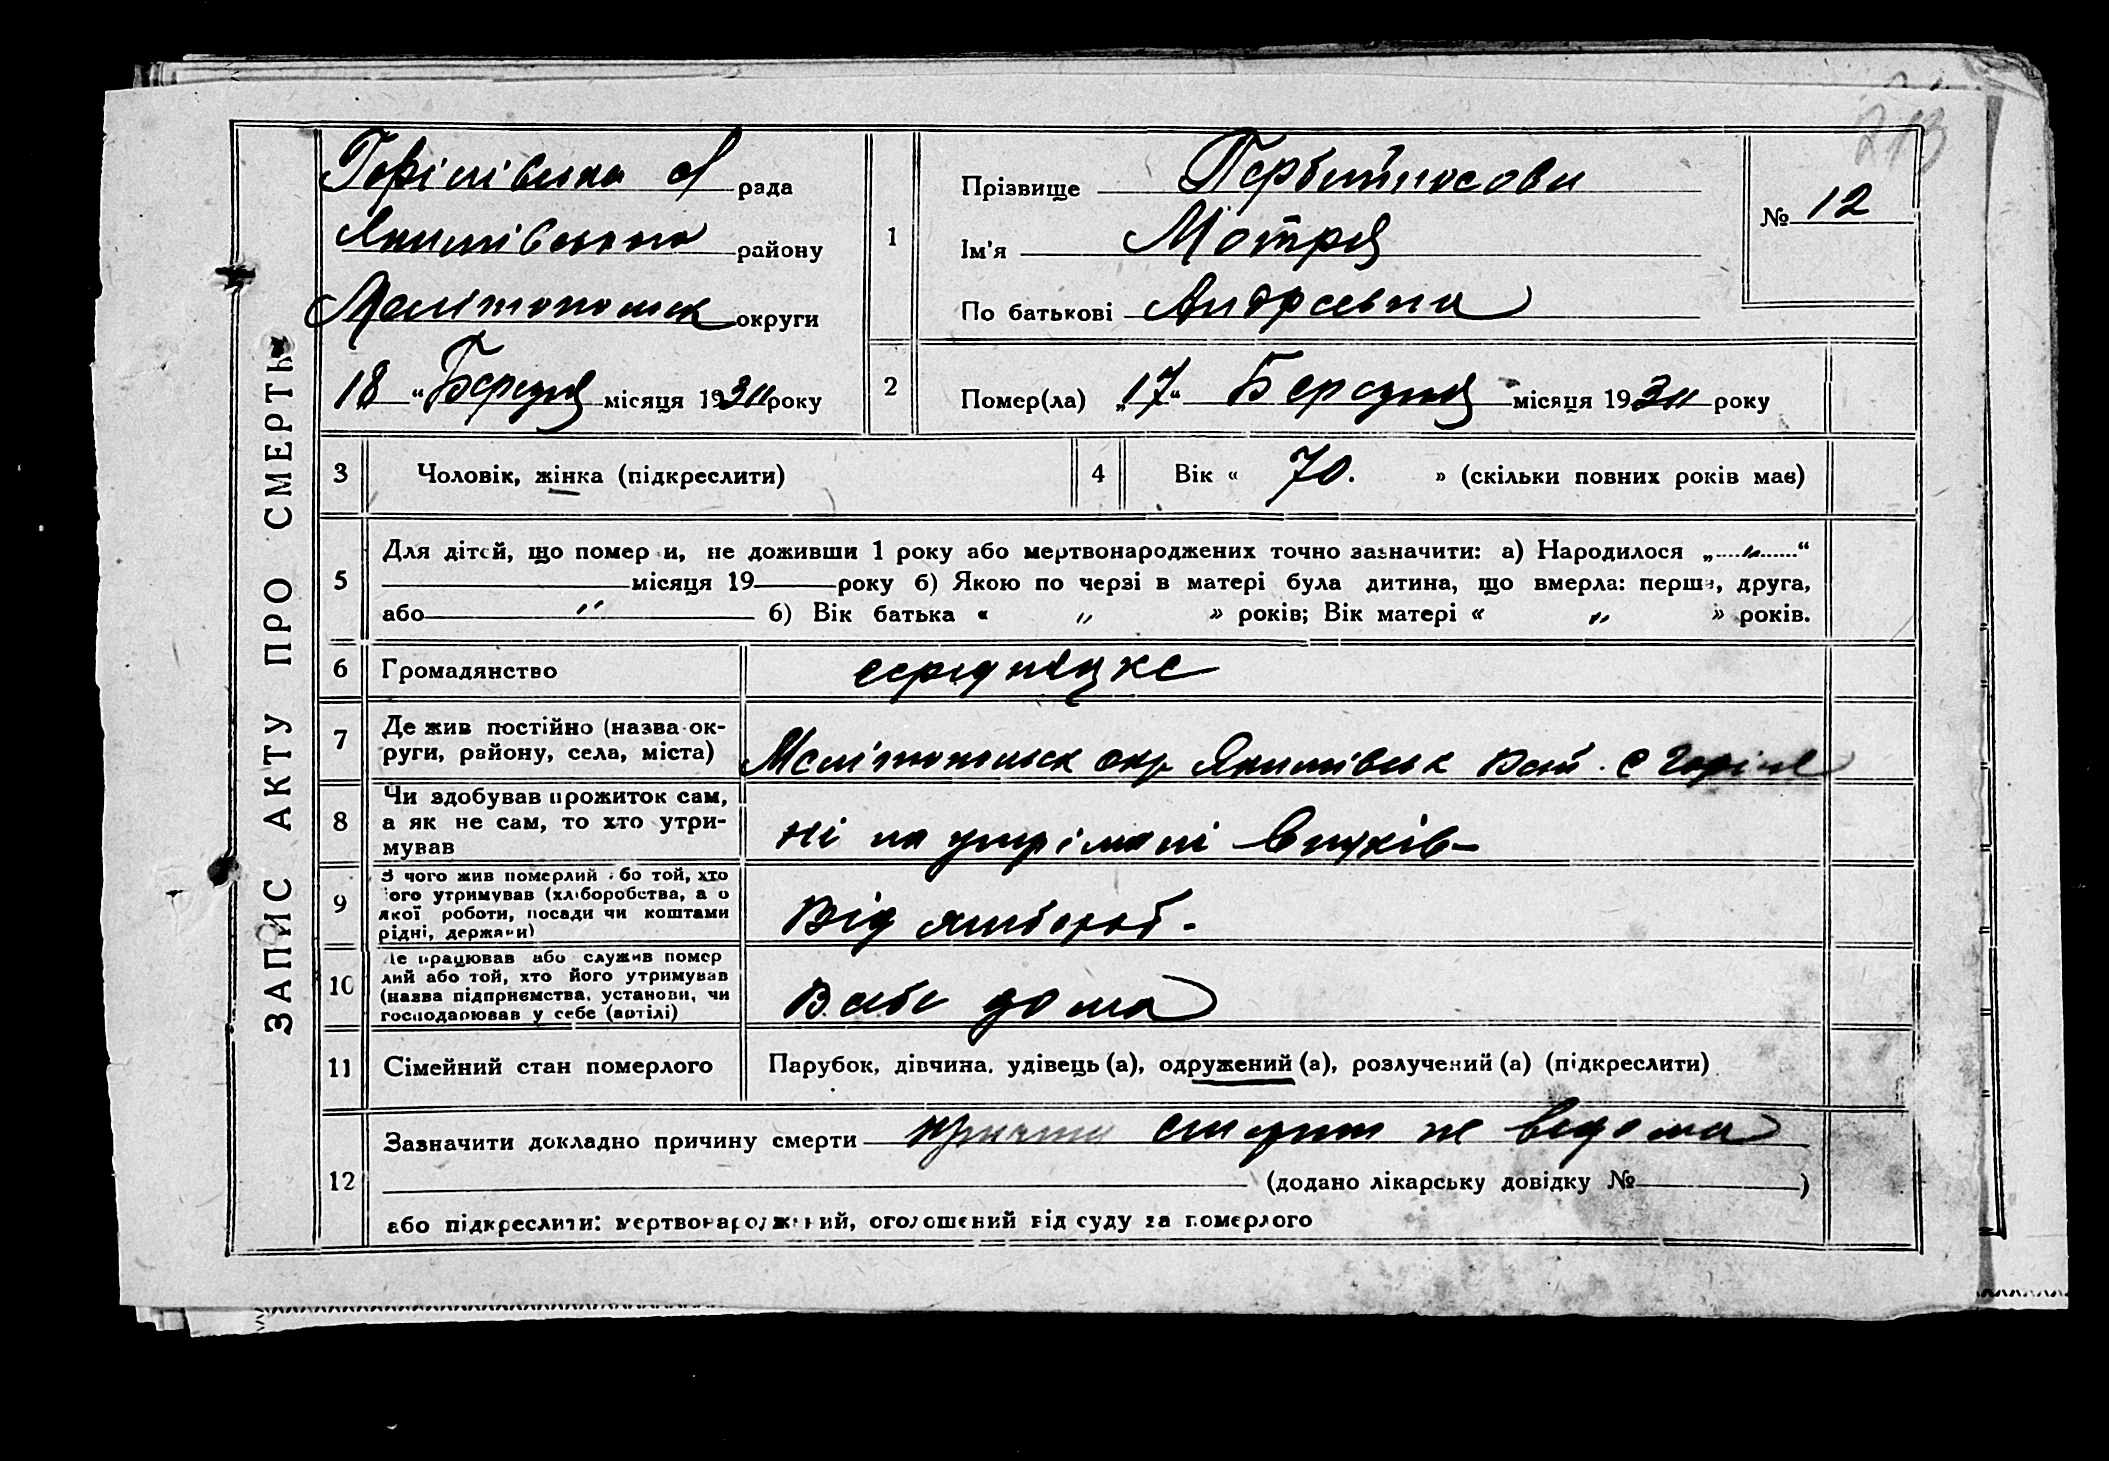 213
ЗАПИС АКТУ ПРО СМЕРТЬ
рада
Якимівського району
Мелітопольск округи
18 " Березня місяця 1930 року
1
Прізвище
Ім'я Мотря
По батькові Андреевна
№ 12
2
Помер(ла) „17“ Березня місяця 1930 року
3 Чоловік, жінка (підкреслити)
4 Вік « 70. » (скільки повних років має)
5 Для дітей, що померли, не доживши 1 року або мертвонароджених точно зазначити: а) Народилося „ " “
місяця 19 року б) Якою по черзі в матері була дитина, що вмерла: перша, друга,
або " б) Вік батька « " » років; Вік матері « " » років.
6 Громадянство середняцке
7 Де жив постійно (назва ок-
руги, району, села, міста) Мелітопольск окр Якимівск с
8 Чи здобував прожиток сам,
а як не сам, то хто утри-
мував ні на утрімані внуків
9 З чого жив померлий або той, хто
його утримував (хліборобства, або
якої роботи, посади чи коштами
рідні, держави) Від хлібороб.
10 Де працював або служив помер
лий або той, хто його утримував
(назва підприємства, установи, чи
господарював у себе (артілі) В себе дома
11 Сімейний стан померлого Парубок, дівчина, удівець (а), одружений (а), розлучений (а) (підкреслити)
12 Зазначити докладно причину смерти не ведома
(додано лікарську довідку № )
або підкреслити: мертвонароджений, оголошений від суду за померлого